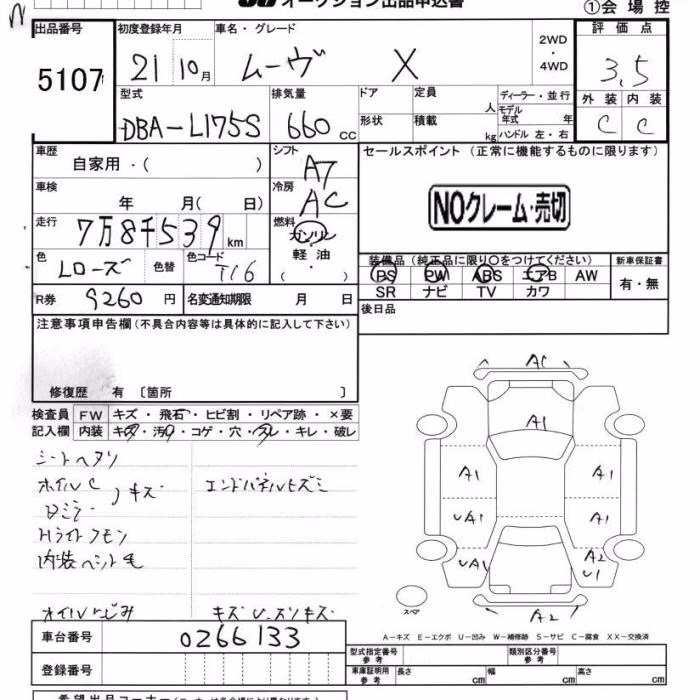 オークション出品申込書
①会場控
出品番号
5107
初度登録年月
21 10月
車名・グレード
ムーヴ X
2WD・4WD
評価点
3.5
型式
DBA-L175S
排気量
660cc
ドア
定員 人
形状
積載 kg
ディーラー・並行
モデル年式 年
ハンドル 左・右
外装 内装
C C
車歴
自家用・( )
車検
年 月( 日)
走行
7万8千539km
色
Lローズ
色替
色コード
T16
R券 9260円
名変通知期限 月 日
シフト
A7
冷房
AC
燃料
ガソリン・軽油・( )
セールスポイント(正常に機能するものに限ります)
NOクレーム・売切
装備品(純正品に限り○をつけてください)
PS PW ABS エアB AW
SR ナビ TV カワ
新車保証書
有・無
後日品
注意事項申告欄(不具合内容等は具体的に記入して下さい)
修復歴 有 〔箇所 〕
検査員記入欄
FW キズ・飛石・ヒビ割・リペア跡・×要
内装 キズ・汚れ・コゲ・穴・スレ・キレ・破レ
シートヘタリ
ホイルC キズ
エンドパネルヒズミ
Dミラー
Hライトクモン
内装ペット毛
オイルにじみ
キズ U スリキズ
AC
A1
A1 A1
UA1 A1
UA1 A2 U1
A2
スペア
A－キズ E－エクボ U－凹み W－補修跡 S－サビ C－腐食 XX－交換済
車台番号
0266133
登録番号
型式指定番号 参考
類別区分番号 参考
車庫証明用 参考
長さ cm 幅 cm 高さ cm